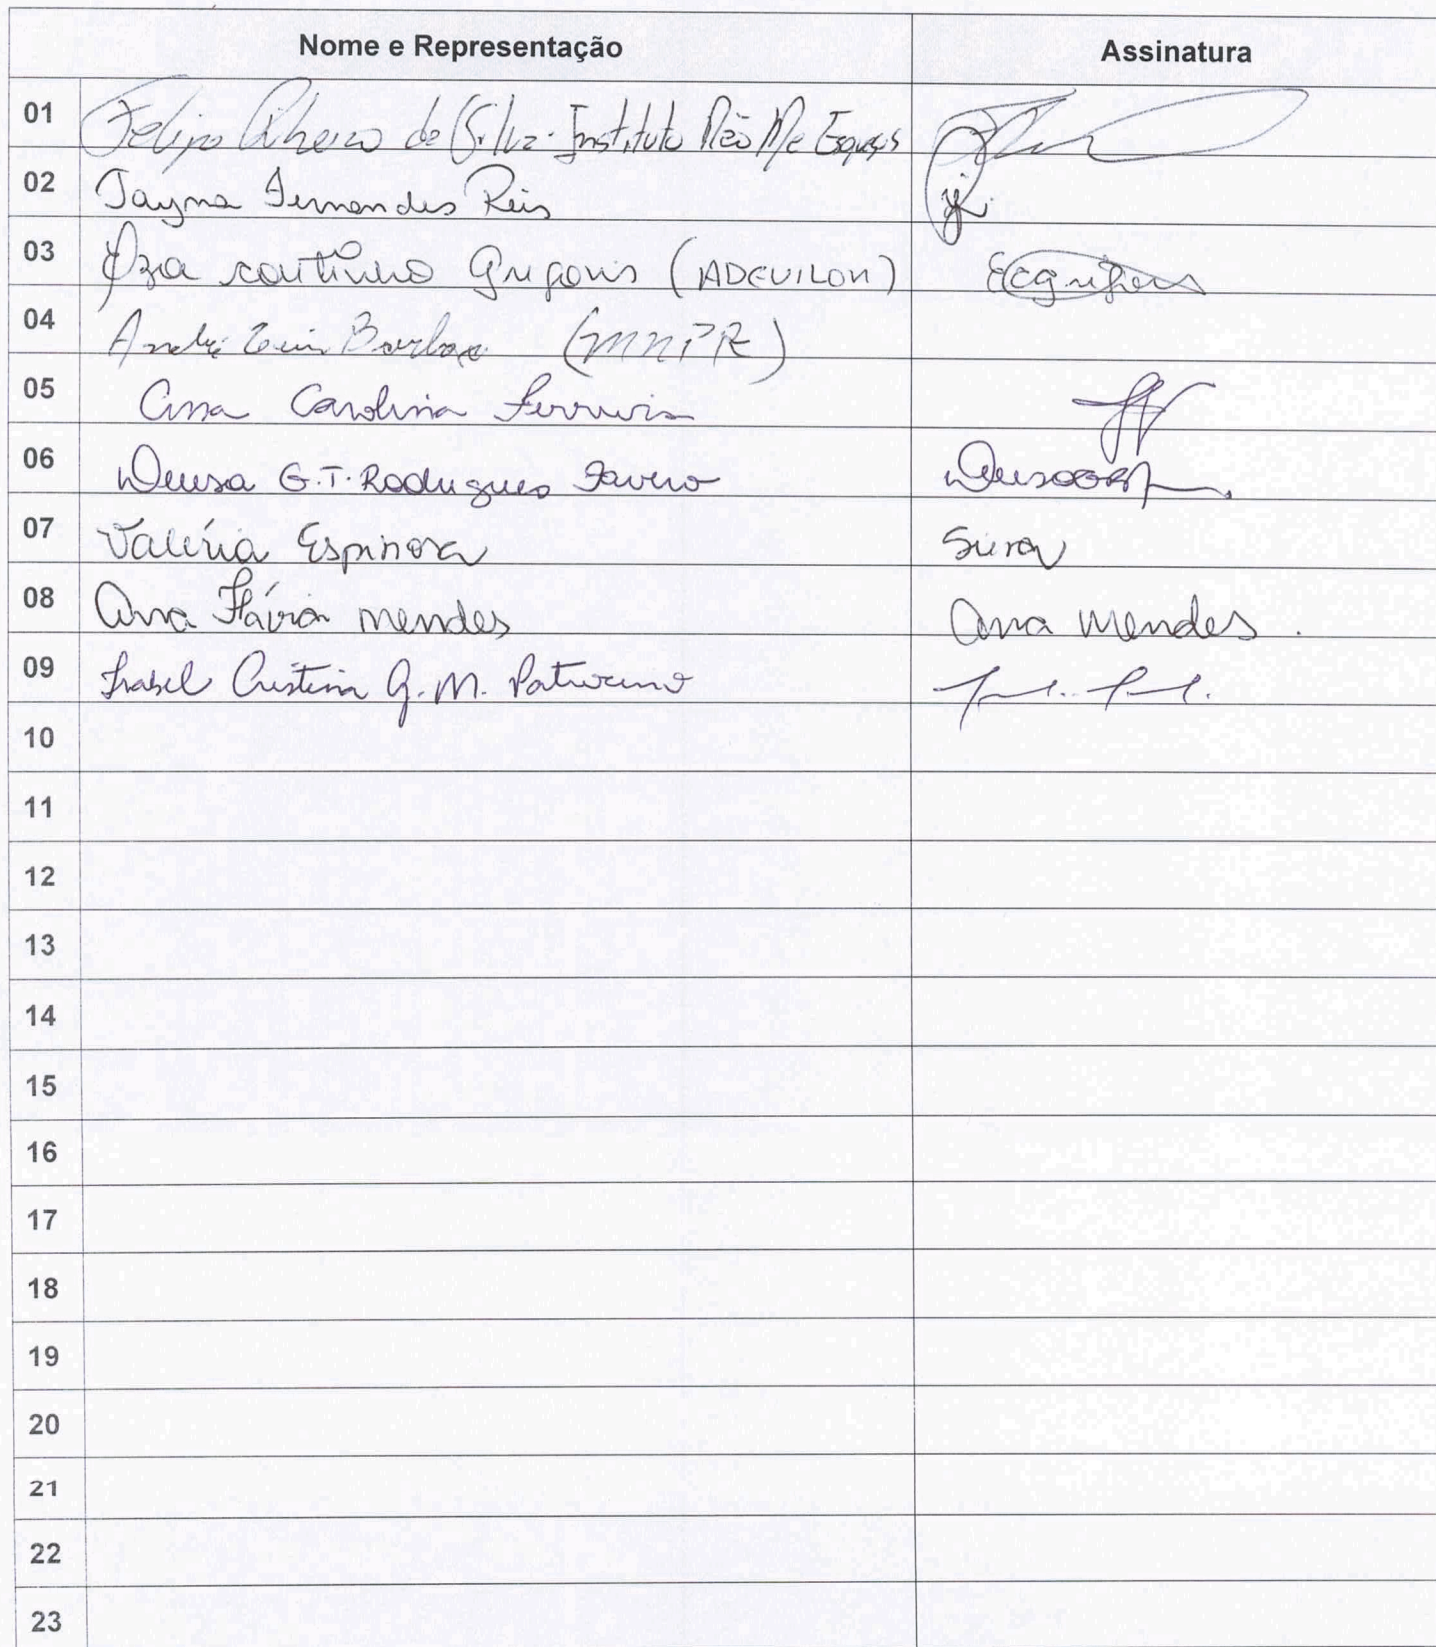 Nome e Representação Assinatura
01 Felipe de Silva - Instituto Não Me Esqueças
02 Tayna Fernandes Reis
03 coutinho (ADEVILON)
04 André Luis Barbosa (MNPR)
05 Ana Carolina Ferreira
06 Neusa G.T. Rodrigues Favero
07 Valéria Espinosa
08 Ana Flávia mendes Ana Mendes.
09 Isabel Cristina G. M.
10
11
12
13
14
15
16
17
18
19
20
21
22
23